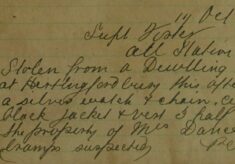 19 Oct
Supt Foster
all Station
Stolen from a Dwelling
at Hertingfordbury this after
a silver watch & chain. a
black jacket & vest 3 half
the property of Mrs Dance
tramps suspected